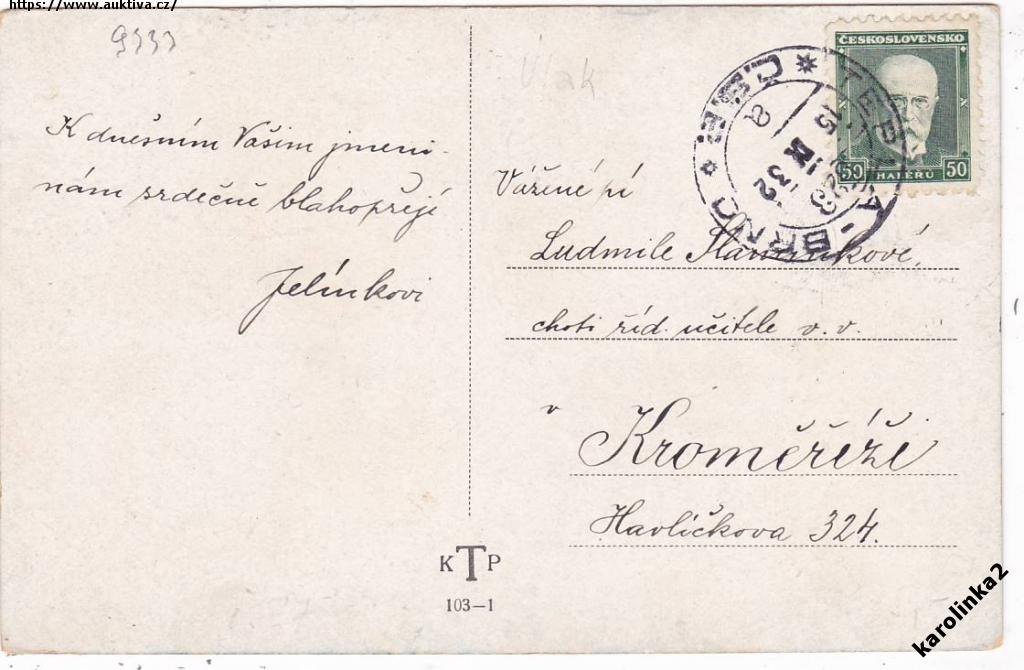 https://www.auktiva.cz/
9333
Vlak
K dnešním Vašim jmeni-
nám srdečně blahopřejí
Jelínkovi
ČESKOSLOVENSKO
50 HALÉŘŮ 50
BRNO
ČSR
15 IX 32
a
Vážené pí
Ludmile
choti říd. učitele v. v.
v
Kroměříži
Havlíčkova 324.
K T P
103–1
karolinka2